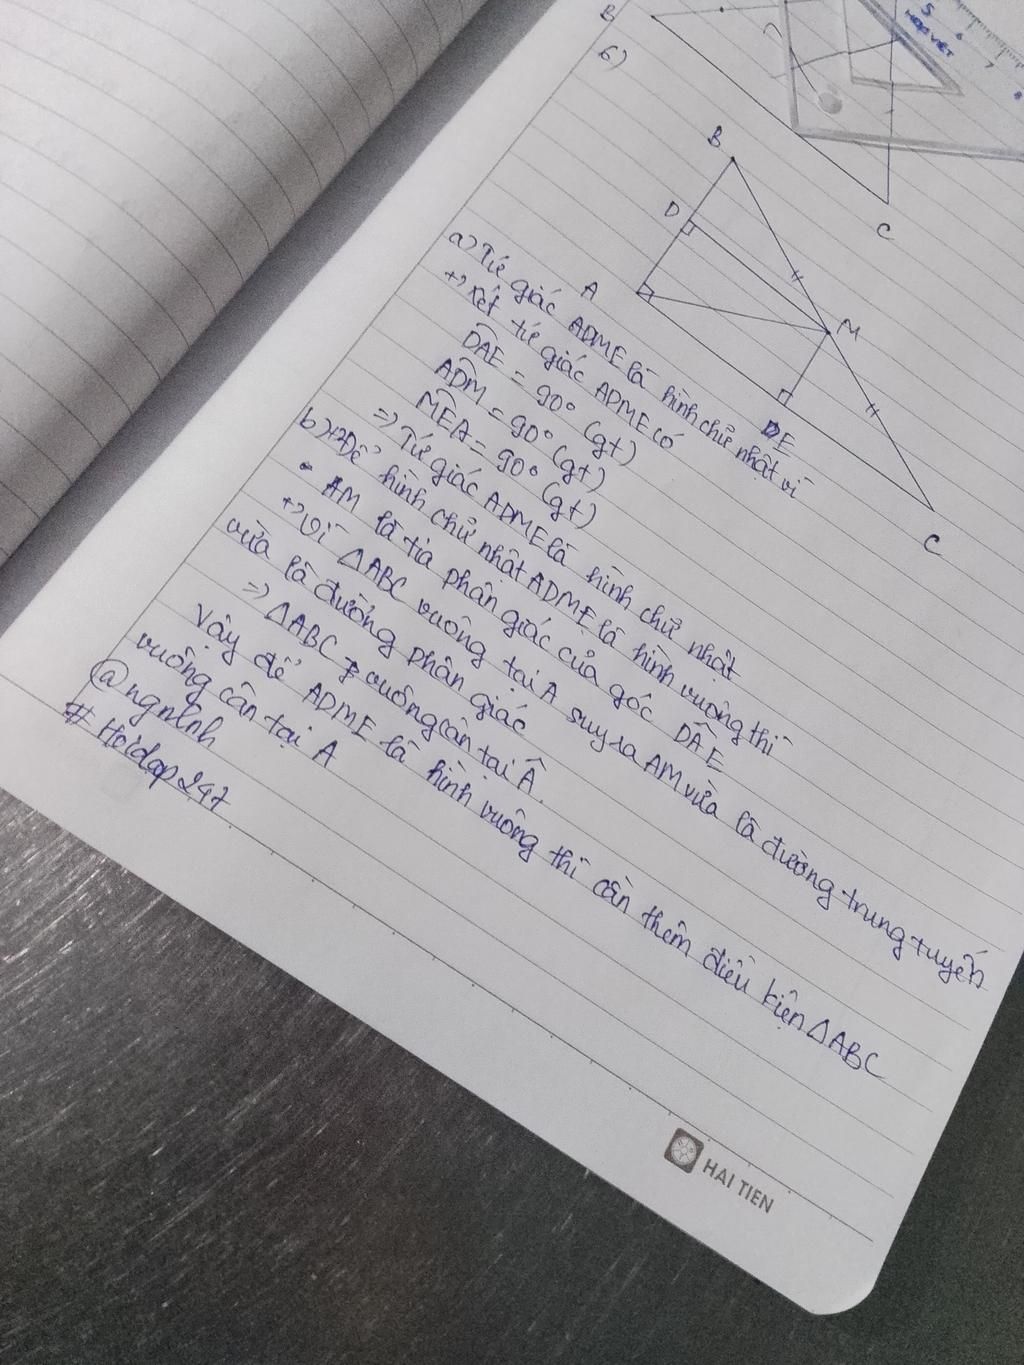 B
5
HOA VIET
6
7
8
6)
C
B
D
A
M
E
C
a) Tứ giác ADME là hình chữ nhật vì
+, xét tứ giác ADME có
DAE = 90° (gt)
ADM = 90° (gt)
MEA = 90° (gt)
=> Tứ giác ADME là hình chữ nhật
b) +, Để hình chữ nhật ADME là hình vuông thì
AM là tia phân giác của góc DÂE
+, Vì △ABC vuông tại A suy ra AM vừa là đường trung tuyến
vừa là đường phân giác
=> △ABC vuông cân tại Â.
Vậy để ADME là hình vuông thì cần thêm điều kiện △ABC
vuông cân tại A
@ngnlnh
# Hoidap247
HAI TIEN